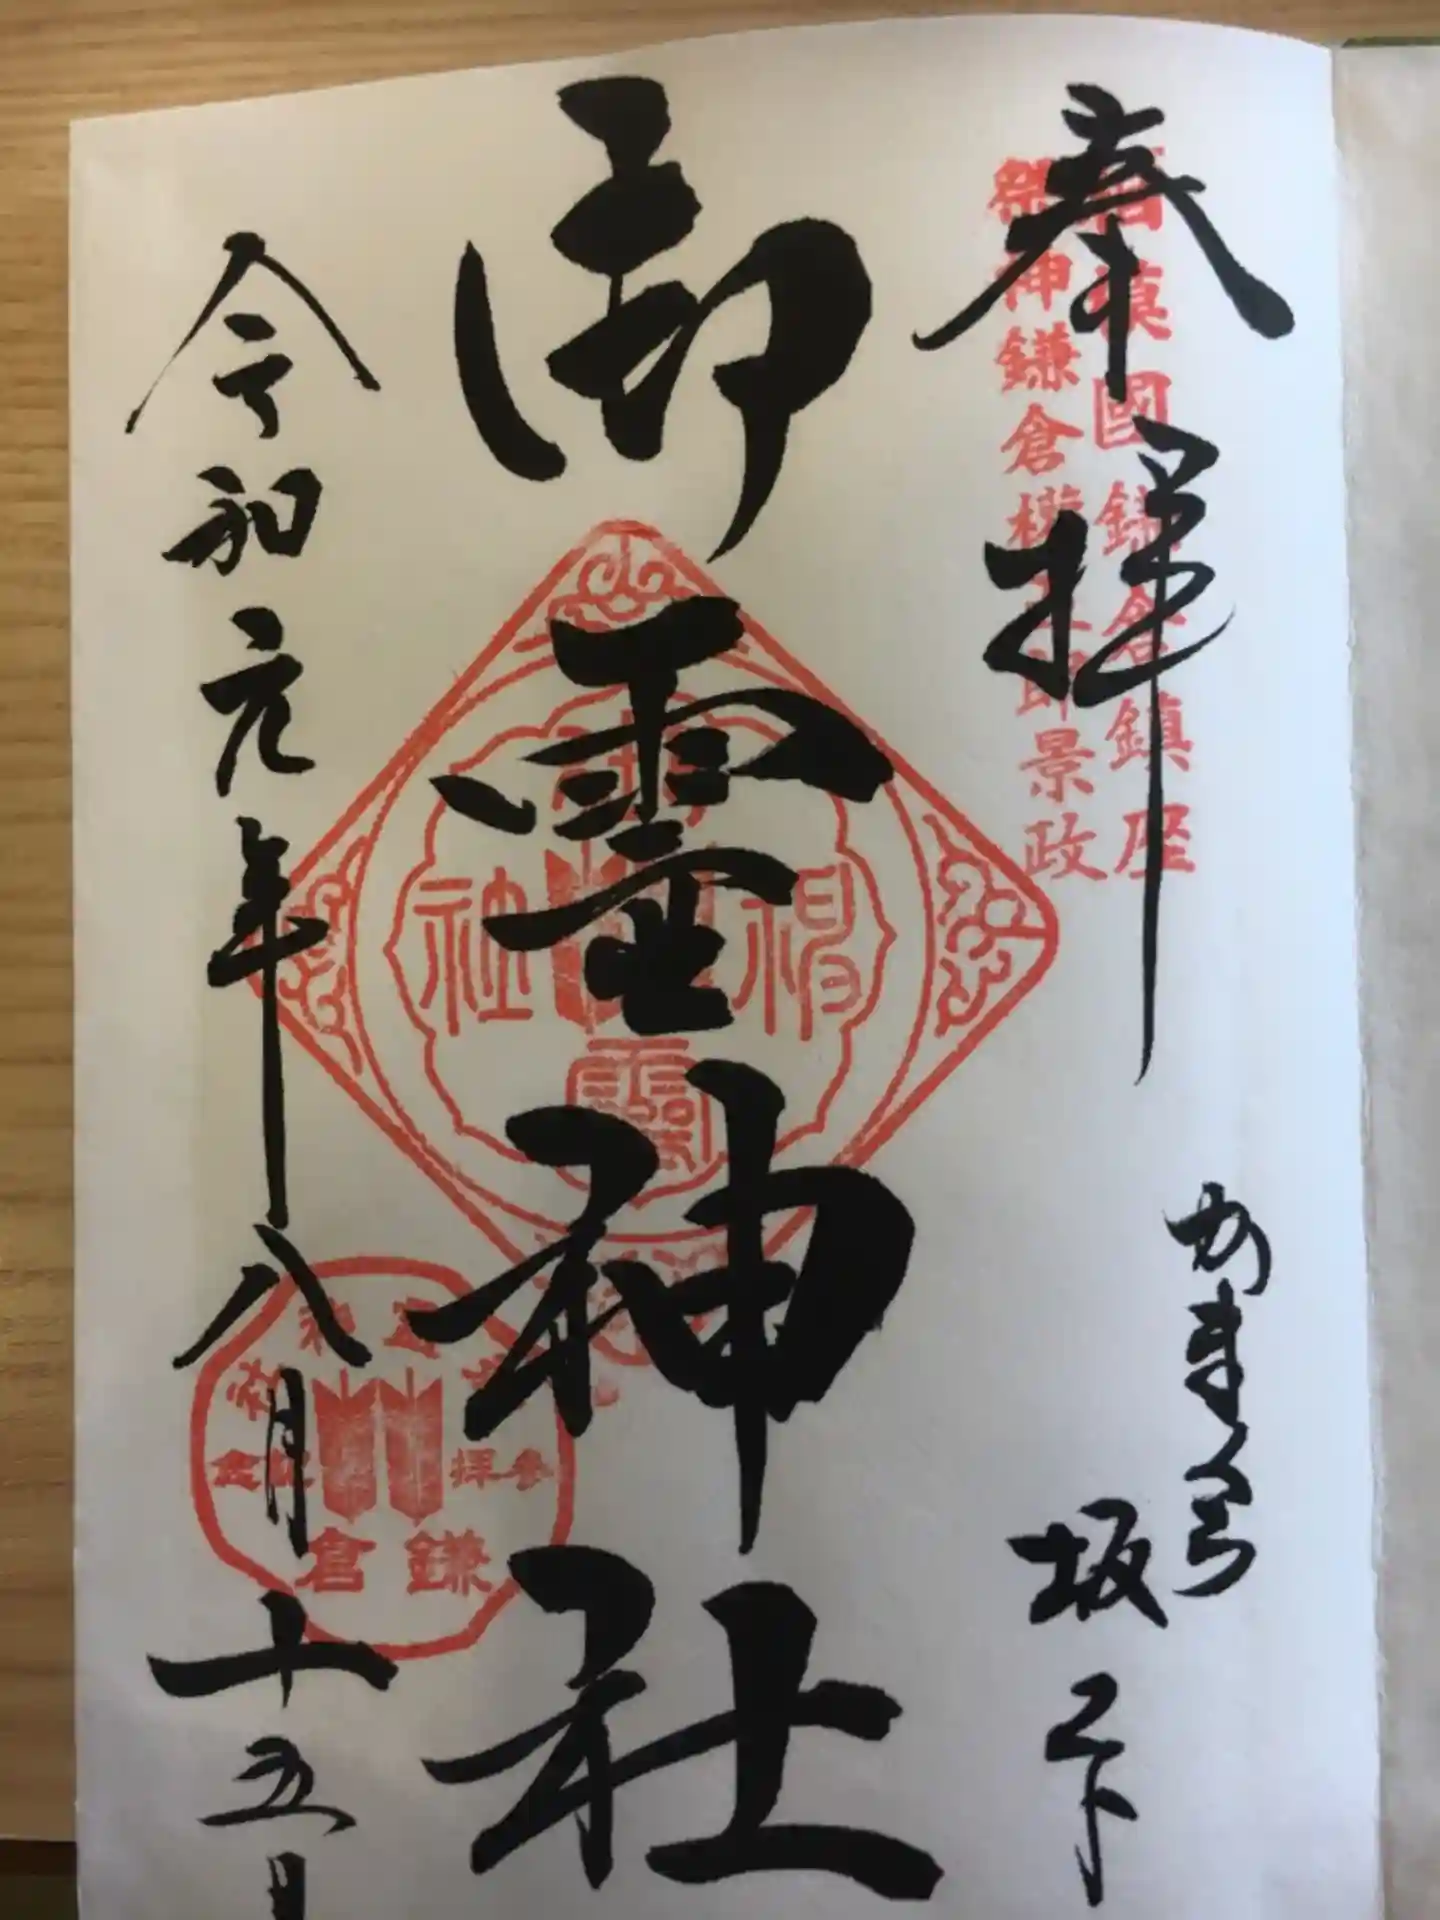 奉拝
相模國鎌倉鎮座
祭神鎌倉権五郎景政
かまくら
坂ノ下
御霊神社
神
社
霊
参拝記念
鎌倉
令和元年八月十五日